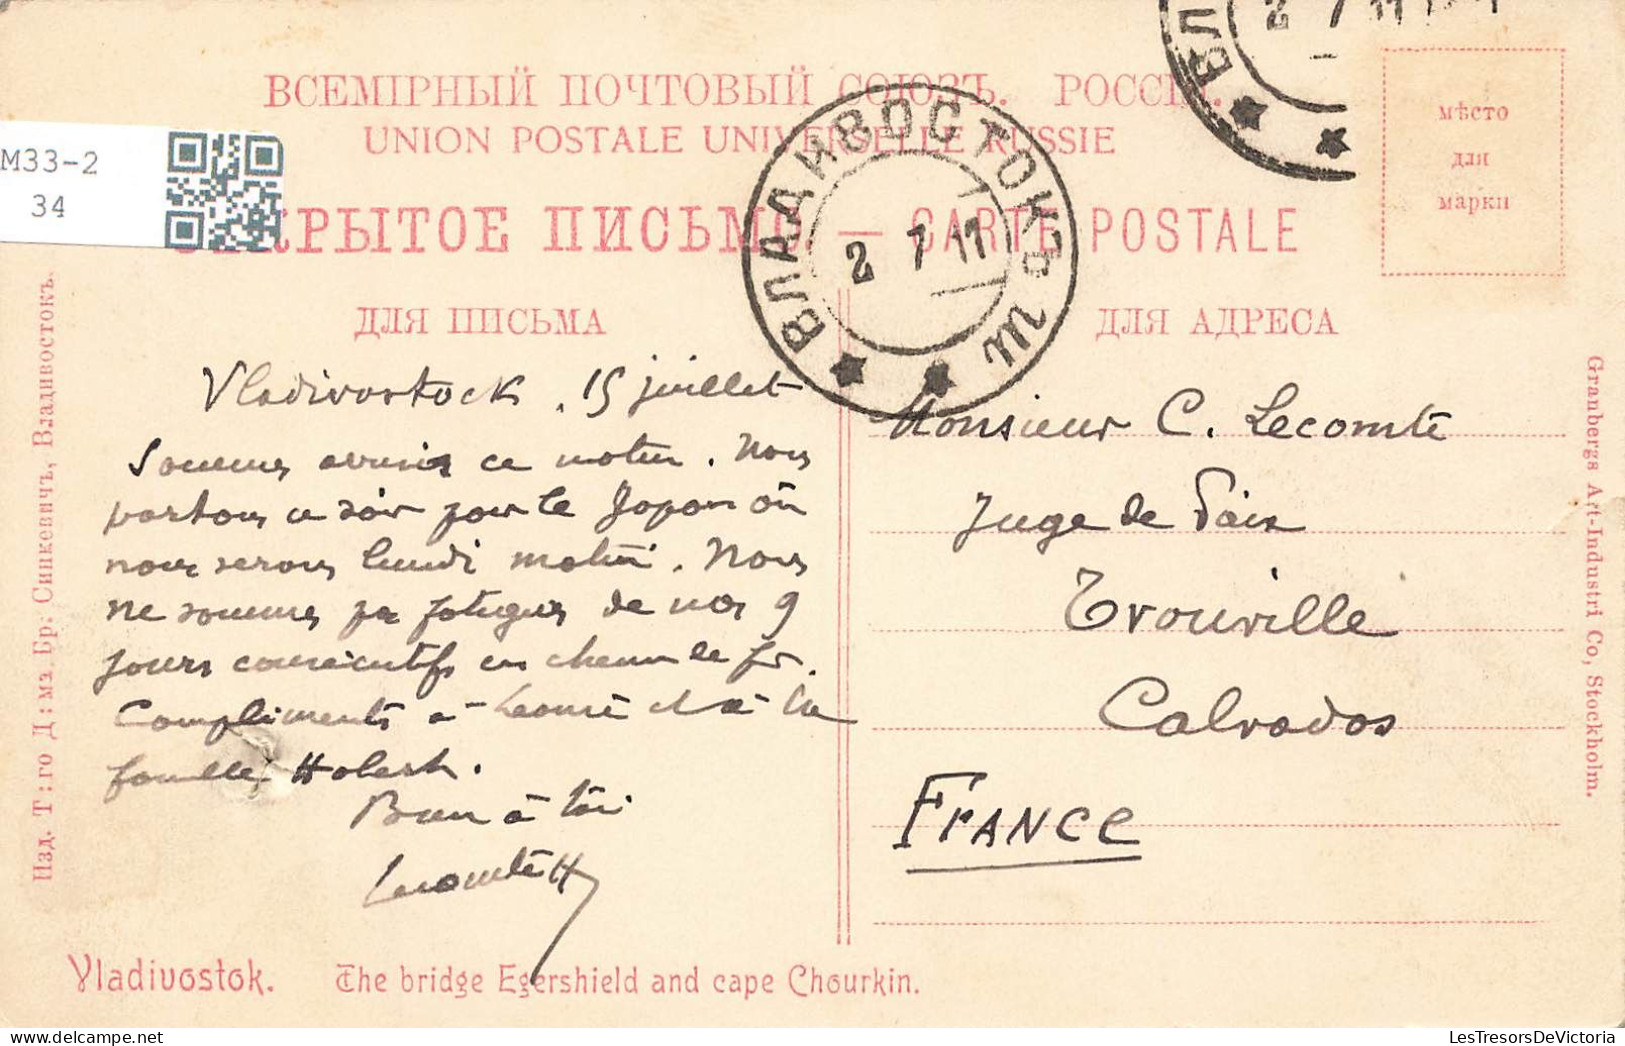 ВСЕМІРНЫЙ ПОЧТОВЫЙ СОЮЗЪ. РОССІЯ.
UNION POSTALE UNIVERSELLE RUSSIE
M33-2
34
ОТКРЫТОЕ ПИСЬМО — CARTE POSTALE
мѣсто
для
марки
ВЛАДИВОСТОКЪ
2 7 11
2 7 11
ДЛЯ ПИСЬМА
ДЛЯ АДРЕСА
Vladivostock, 15 juillet
Sommes arrivés ce matin. Nous
partons ce soir pour le Japon où
nous serons lundi matin. Nous
ne sommes pas fatigués de nos 9
jours consécutifs en chemin de fer.
Compliments à Léonie et à la
famille
Bien à toi
Lecomte H
Monsieur C. Lecomte
Juge de Paix
Trouville
Calvados
FRANCE
Изд. Т:го Д:ма Бр: Синкевичъ, Владивостокъ.
Granbergs Art-Industri Co, Stockholm.
Vladivostok. The bridge Egershield and cape Chourkin.
LesTresorsDeVictoria